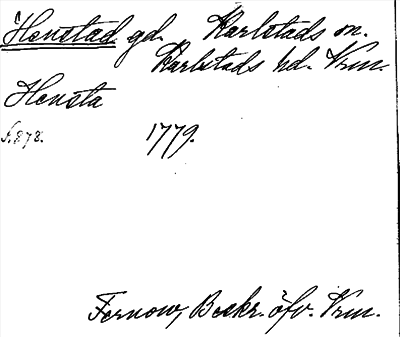 Henstad gd. Karlstads sn.
Karlstads hd. Vrm.
Hensta
s. 878. 1779.
Fernow, Beskr. öfv. Vrm.